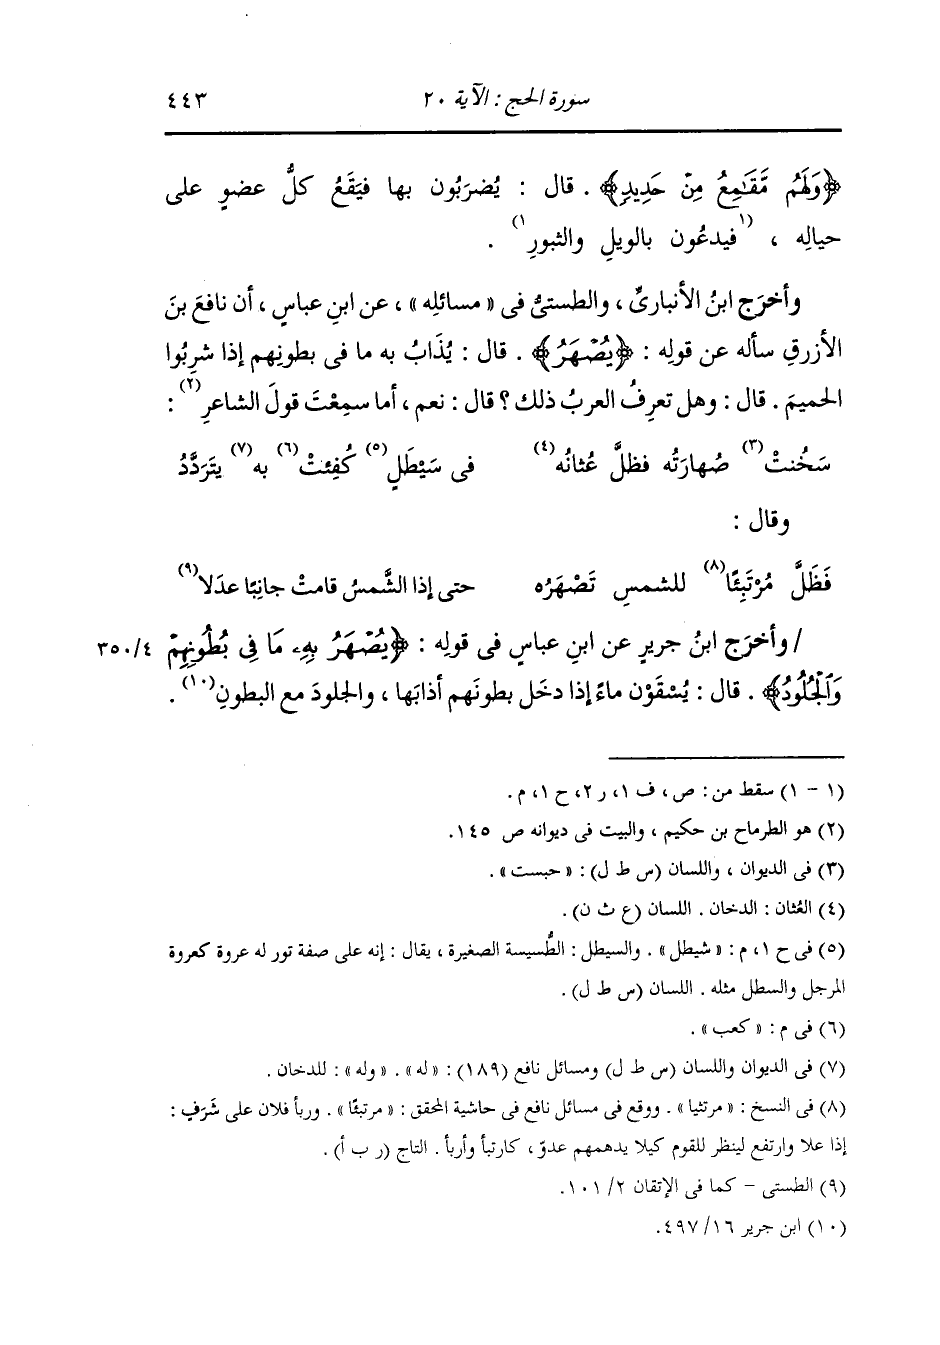 سورة الحج : الآية ٢٠ ٤٤٣
﴿وَلَهُم مَّقَٰمِعُ مِنْ حَدِيدٍ﴾ . قال : يُضرَبُون بها فيَقَعُ كلُّ عضوٍ على
حيالِه ، (١فيدعُون بالويلِ والثبورِ١) .
وأخرَج ابنُ الأنبارىِّ ، والطستىُّ فى « مسائلِه » ، عن ابنِ عباسٍ ، أن نافعَ بنَ
الأزرقِ سأله عن قولِه : ﴿يُصْهَرُ﴾ . قال : يُذَابُ به ما فى بطونِهم إذا شرِبُوا
الحميمَ . قال : وهل تعرِفُ العربُ ذلك ؟ قال : نعم ، أما سمِعْتَ قولَ الشاعرِ(٢) :
سَخُنتْ(٣) صُهارَتُه فظلَّ عُثانُه(٤) فى سَيْطَلٍ(٥) كُفِئتْ(٦) به(٧) يتَرَدَّدُ
وقال :
فَظَلَّ مُرْتَبِئًا(٨) للشمسِ تَصْهَرُه حتى إذا الشَّمسُ قامتْ جانِبًا عدَلا(٩)
/ وأخرَج ابنُ جريرٍ عن ابنِ عباسٍ فى قولِه : ﴿يُصْهَرُ بِهِۦ مَا فِى بُطُونِهِمْ ٣٥٠/٤
وَٱلْجُلُودُ﴾ . قال : يُسْقَوْن ماءً إذا دخَل بطونَهم أذابَها ، والجلودَ مع البطونِ(١٠) .
(١ - ١) سقط من : ص ، ف ١ ، ر ٢ ، ح ١ ، م .
(٢) هو الطرماح بن حكيم ، والبيت فى ديوانه ص ١٤٥ .
(٣) فى الديوان ، واللسان (س ط ل) : « حبست » .
(٤) العُثان : الدخان . اللسان (ع ث ن) .
(٥) فى ح ١ ، م : « شيطل » . والسيطل : الطُّسيسة الصغيرة ، يقال : إنه على صفة تور له عروة كعروة
المرجل والسطل مثله . اللسان (س ط ل) .
(٦) فى م : « كعب » .
(٧) فى الديوان واللسان (س ط ل) ومسائل نافع (١٨٩) : « له » . « وله » : للدخان .
(٨) فى النسخ : « مرتثيا » . ووقع فى مسائل نافع فى حاشية المحقق : « مرتبئًا » . وربأ فلان على شَرَفٍ :
إذا علا وارتفع لينظر للقوم كيلا يدهمهم عدوّ ، كارتبأ وأربأ . التاج (ر ب أ) .
(٩) الطستى - كما فى الإتقان ٢/ ١٠١ .
(١٠) ابن جرير ١٦/ ٤٩٧ .